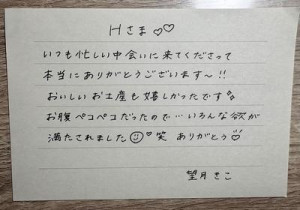 Hさま♡♡
いつも忙しい中会いに来てくださって
本当にありがとうございます〜!!
おいしいお土産も嬉しかったです
お腹ペコペコだったので…いろんな欲が
満たされました☺♡笑 ありがとう♡
望月きこ